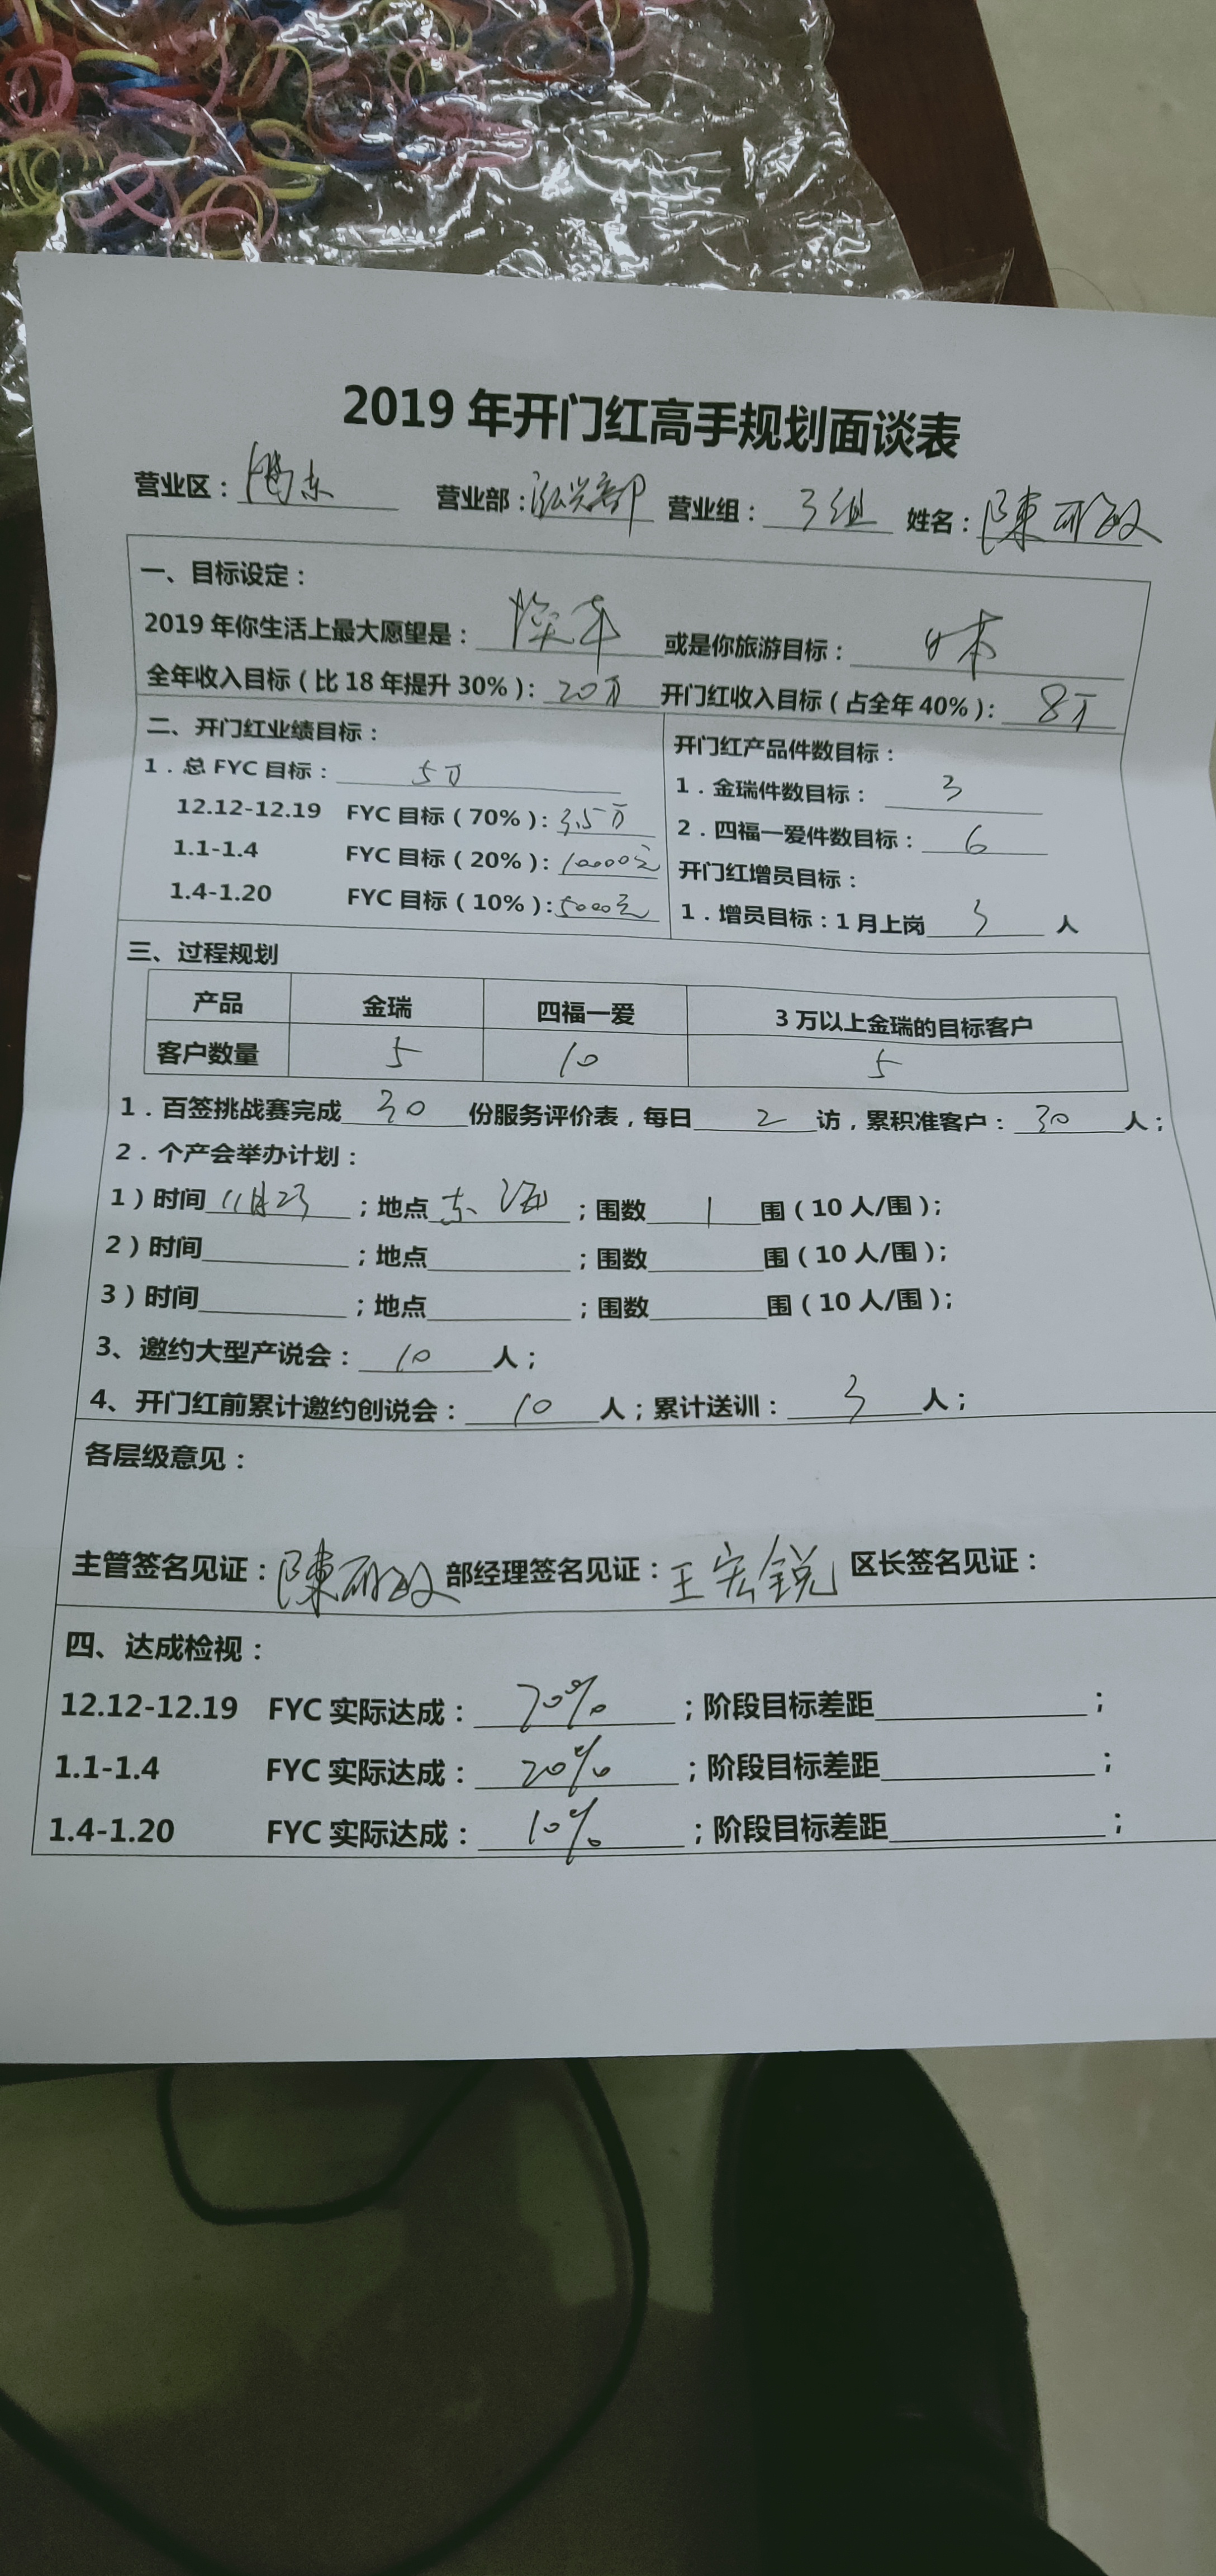 2019 年开门红高手规划面谈表
营业区： 营业部：泓兴部 营业组：3组 姓名：陳
一、目标设定：
2019 年你生活上最大愿望是： 车 或是你旅游目标：日本
全年收入目标（比 18 年提升 30%）：20万 开门红收入目标（占全年 40%）：8万
二、开门红业绩目标：
1．总 FYC 目标：5万
12.12-12.19 FYC 目标（70%）：3.5万
1.1-1.4 FYC 目标（20%）：10000元
1.4-1.20 FYC 目标（10%）：5000元
开门红产品件数目标：
1．金瑞件数目标：3
2．四福一爱件数目标：6
开门红增员目标：
1．增员目标：1 月上岗 3 人
三、过程规划
产品 金瑞 四福一爱 3 万以上金瑞的目标客户
客户数量 5 10 5
1．百签挑战赛完成 30 份服务评价表，每日 2 访，累积准客户：30 人；
2．个产会举办计划：
1）时间 11月23 ；地点 东海 ；围数 1 围（10 人/围）；
2）时间 ；地点 ；围数 围（10 人/围）；
3）时间 ；地点 ；围数 围（10 人/围）；
3、邀约大型产说会：10 人；
4、开门红前累计邀约创说会：10 人；累计送训：3 人；
各层级意见：
主管签名见证：陳 部经理签名见证：王宏锐 区长签名见证：
四、达成检视：
12.12-12.19 FYC 实际达成：70% ；阶段目标差距 ；
1.1-1.4 FYC 实际达成：20% ；阶段目标差距 ；
1.4-1.20 FYC 实际达成：10% ；阶段目标差距 ；